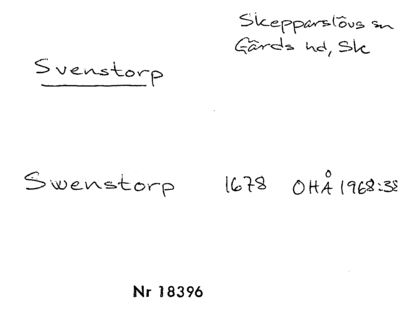 Skepparslövs sn
Gärds hd, Sk
Svenstorp
Swenstorp 1678 OHÅ 1968:38
Nr 18396